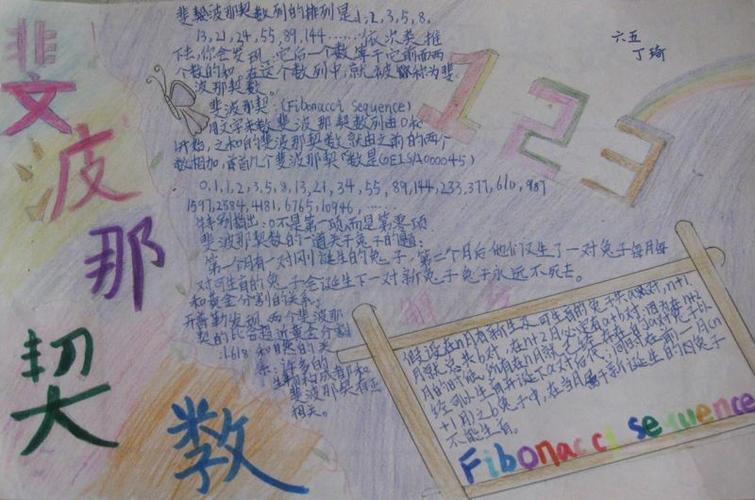 斐波那契数
六五
丁琦
123
斐波那契数列的排列是1,2,3,5,8,
13,21,24,55,89,144……依次类推
下去,你会发现,它后一个数等于它前面两
个数的和。在这个数列中,就被称为斐
波那契数。
斐波那契:(Fibonacci Sequence)
用文字来数,斐波那契数列由0和
1开始,之后的斐波那契数就由之前的两个
数相加,首几个斐波那契数是(OEISA000045)
0,1,1,2,3,5,8,13,21,34,55,89,144,233,377,610,987
1597,2584,4181,6765,10946,……
特别指出:0不是第一项,而是第零项
斐波那契数的一道关于兔子的题:
第一个月有一对刚诞生的兔子,第二个月后他们又生了一对兔子每月每
对可生育的兔子会诞生下一对新兔子兔子永远不死去。
和黄金分割的关系:
开普勒发现两个斐波那
契的比会趋近黄金分割
1.618
许多的
生物构成都和
斐波那契存正
相关。
假设在n月有新生及可生育的兔子共a对,n+1
月就总共b对。在n+2月必定有a+b对,因为在n+2
月的时候,所有在n月就已经存在的a对兔子
经可以生育并诞下a对后代;同时在前一月(n
+1月)之b兔子中,在当月属于新诞生的兔子
不能生育。
Fibonacci sequence